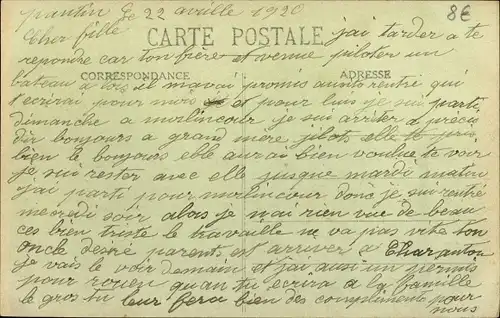 pantin le 22 avrille 1920
8€
Cher fille
CARTE POSTALE
jai tarder a te
repondre car ton frère et venue piloter un
bateau a il mavai promis ausito rentré qui
CORRESPONDANCE
ADRESSE
tecrirai pour moi et pour luis je sui parti
dimanche a molincour je sui arriter a précis
dir bonjours a grand mère elle
bien le bonjours elle aurai bien voulue te voir
je sui rester avec elle jusque mardi matin
jai parti pour molincour donc je sui rentré
mercredi soir alors je nai rien vue de beau
ces bien triste le travaille ne va pas vite ton
oncle désiré parents est arriver a Charanton
je vais le voir demain et jai ausi un permis
pour rouen quan tu ecrira a la famille
le gros tu leur fera bien des compliments pour
nous